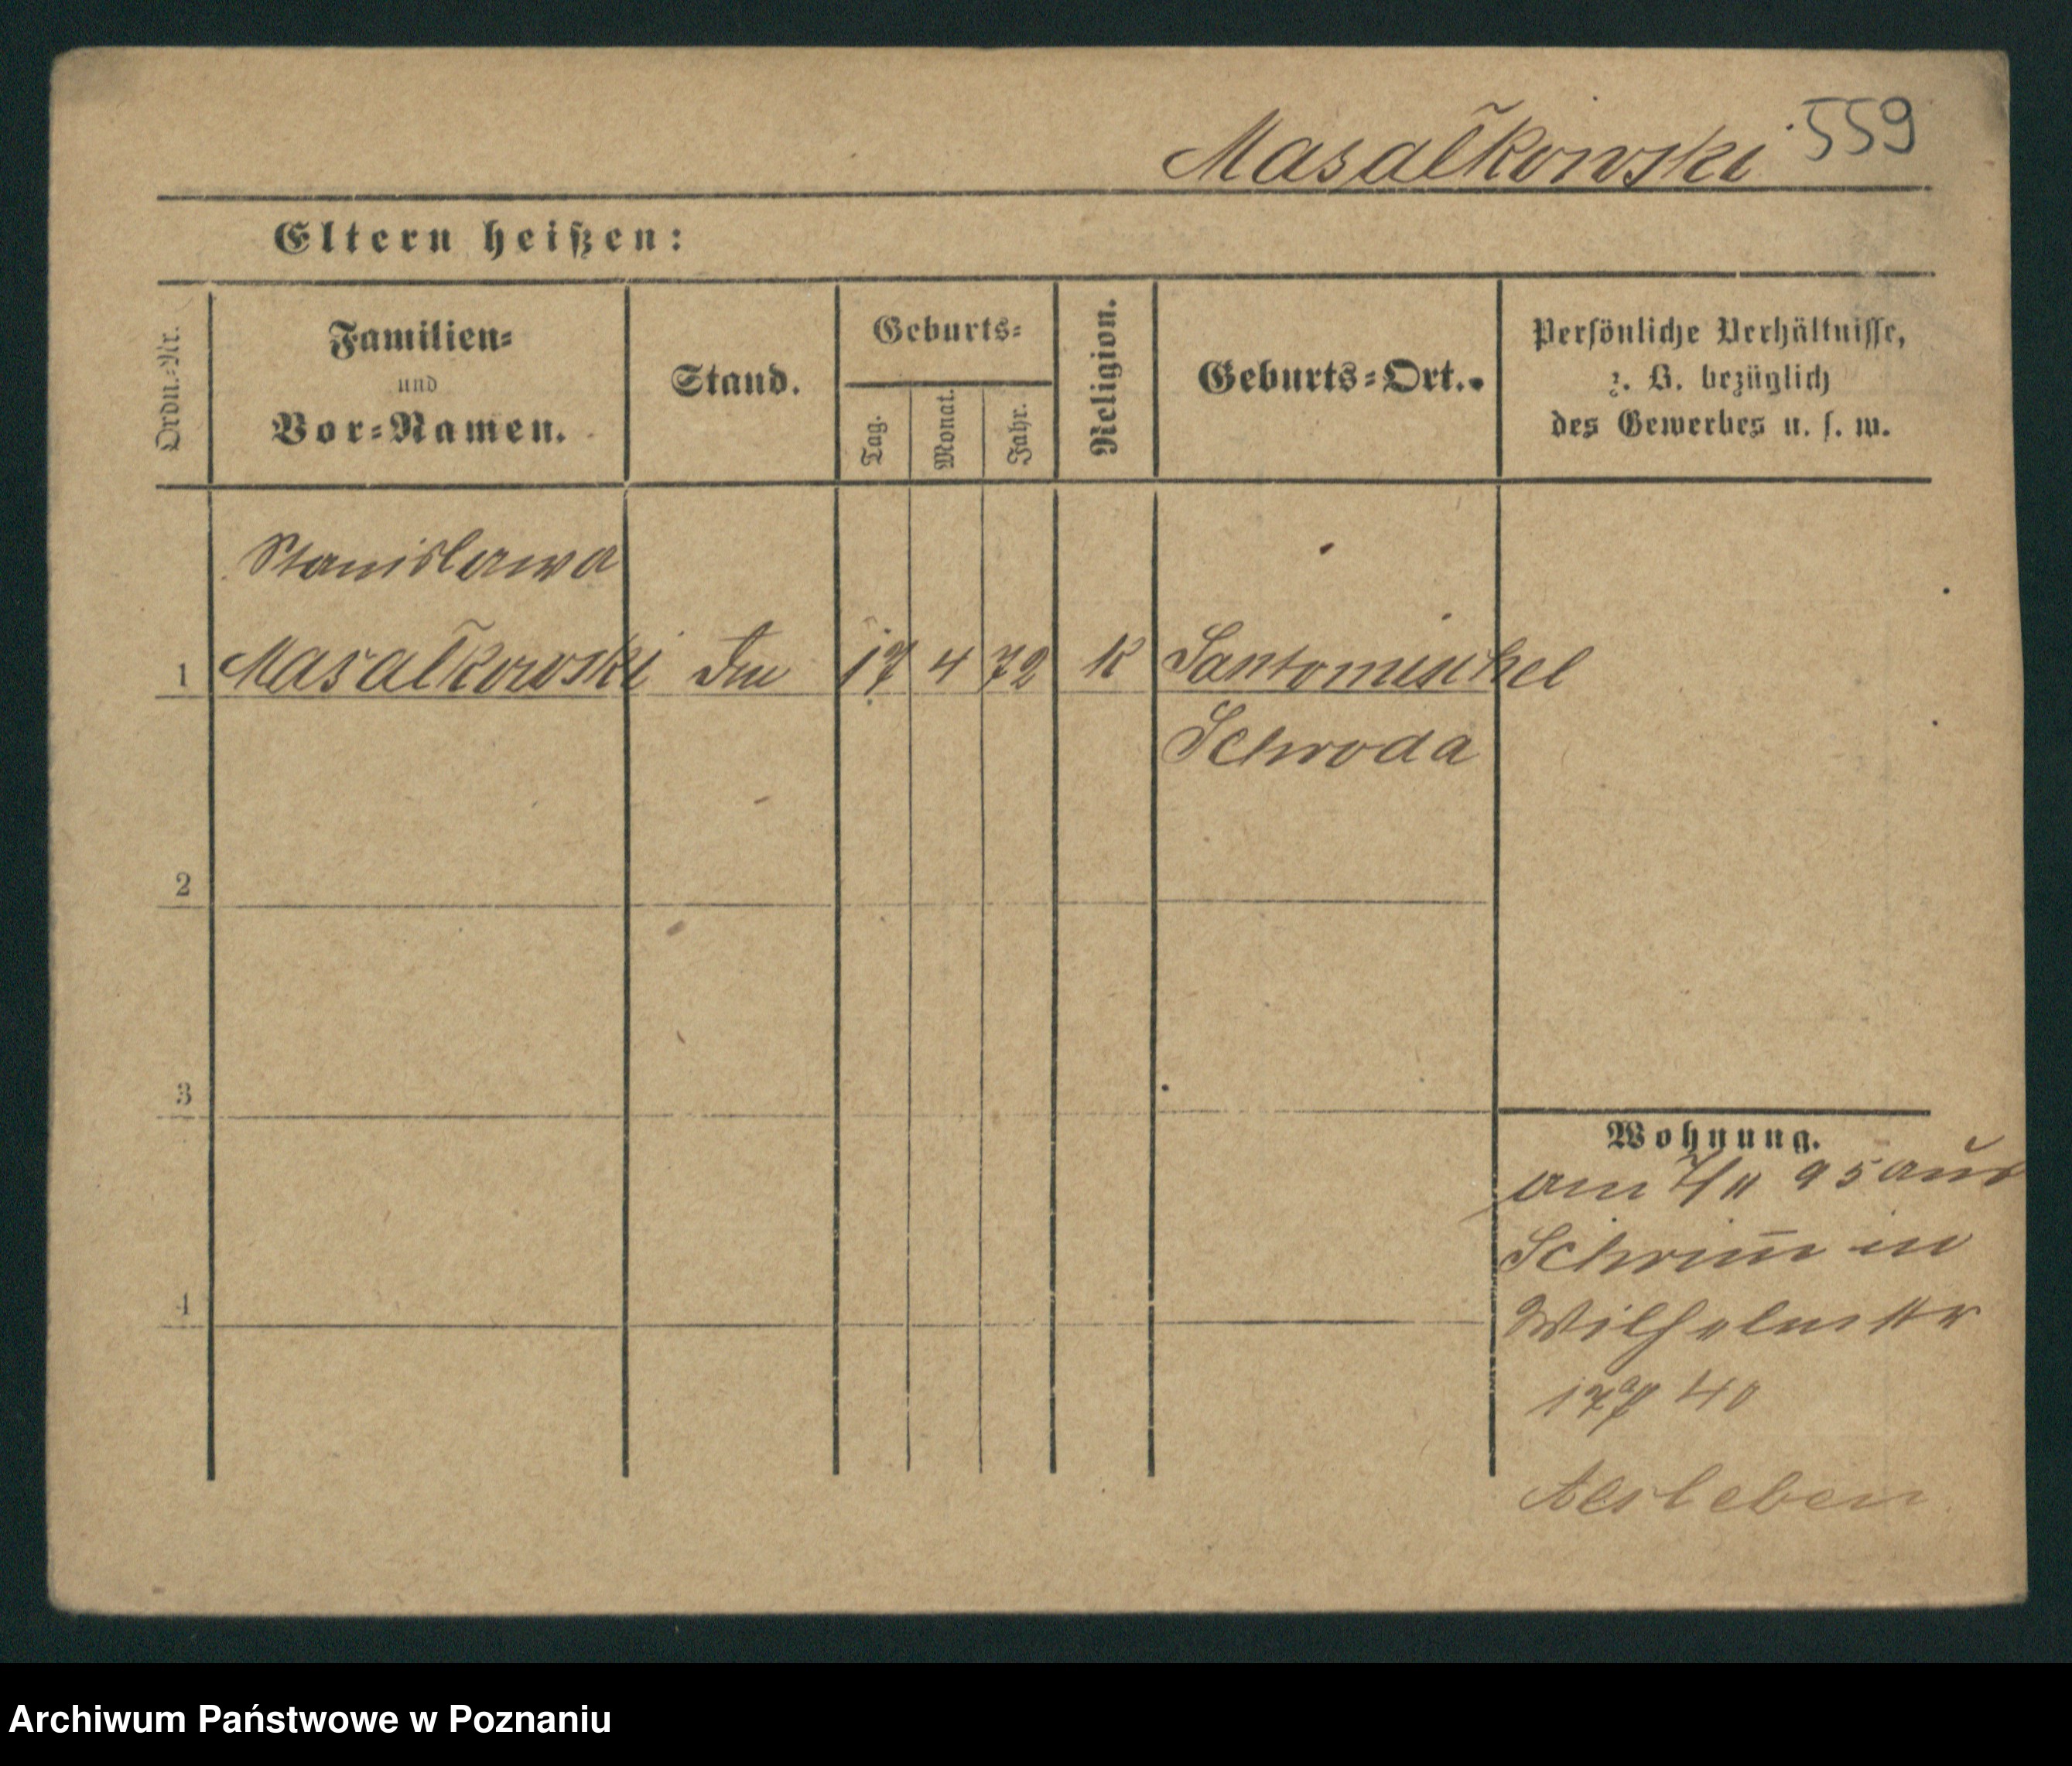 Masalkowski 559
Eltern heißen:
Ordn.-Nr.
Familien-
und
Vor-Namen.
Stand.
Geburts-
Tag.
Monat.
Jahr.
Religion.
Geburts-Ort.
Persönliche Verhältnisse,
z. B. bezüglich
des Gewerbes u. s. w.
Stanislawa
1 Masalkowski 17 4 72 k Santomischel
Schroda
2
3
4
Wohnung.
am 7/11 95 aus
Schrim̄ in
Wilhelmstr
40
Alsleben
Archiwum Państwowe w Poznaniu